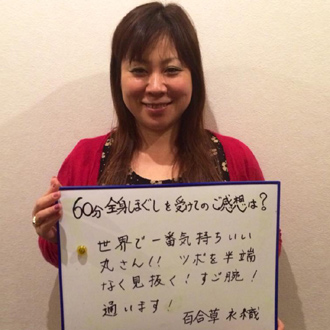 60分 全身ほぐしを受けてのご感想は?
世界で一番気持ちいい
丸さん!! ツボを半端
なく見抜く!すご腕!
通います!
百合草 衣織